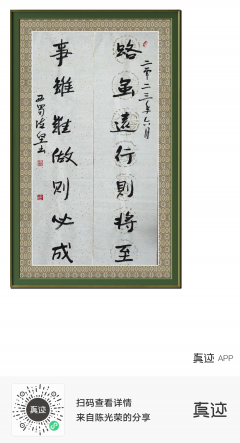 二零二三年六月
路虽遠行則将至
事雖難做则必成
西蜀
真迹 APP
真迹
扫码查看详情
来自陈光荣的分享
真迹